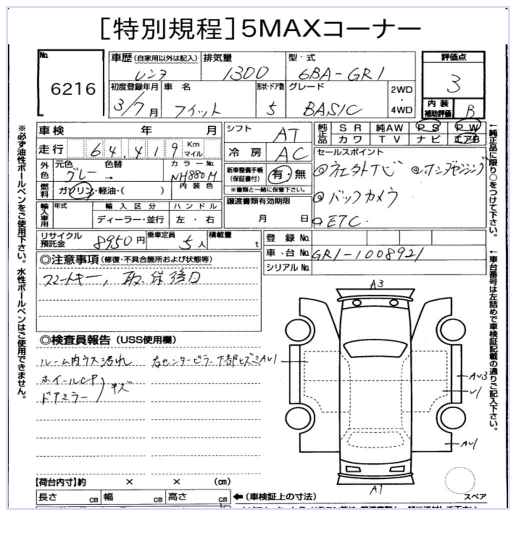 [特別規程]5MAXコーナー
No.
6216
車歴(自家用以外は記入)
レンタ
排気量
1300
型・式
6BA-GR1
評価点
3
初度登録年月
3/7月
車 名
フィット
形状・ドア数
5
グレード
BASIC
2WD
・
4WD
内 装
補助評価
B
車検 年 月
走行 64,419 Km マイル
シフト
AT
純正品
SR 純AW PS PW
社外品
カワ TV ナビ エアB
外色
元色 色替
グレー →
カラーNo.
NH880M
冷 房
AC
セールスポイント
燃料
ガソリン・軽油・( )
内 装 色
新車整備手帳
(保証書付)
有・無
※書類と一緒に保管下さい。
バックカメラ
ETC.
輸入車用
年式
輸 入 区 分
ハ ン ド ル
ディーラー・並行
左 ・ 右
譲渡書類有効期限
月 日
リサイクル預託金
8950円
乗車定員
5人
積載量
t
登 録 No.
車 ・ 台 No.
GR1-1008921
シリアルNo.
◎注意事項(修復・不具合箇所および状態等)
スマートキー, 取保後日
◎検査員報告(USS使用欄)
ルーム内ウス汚れ 右センターピラー下部ヒズミAU1
ホイールCP
ドアミラー
キズ
A3
AU3
U1
AU1
A1
スペア
【荷台内寸】約 × × (cm)
長さ cm 幅 cm 高さ cm
←(車検証上の寸法)
※必ず油性ボールペンをご使用下さい。水性ボールペンはご使用できません。
←純正品に限り○をつけて下さい。
←車台番号は左詰めで車検証記載の通りご記入下さい。